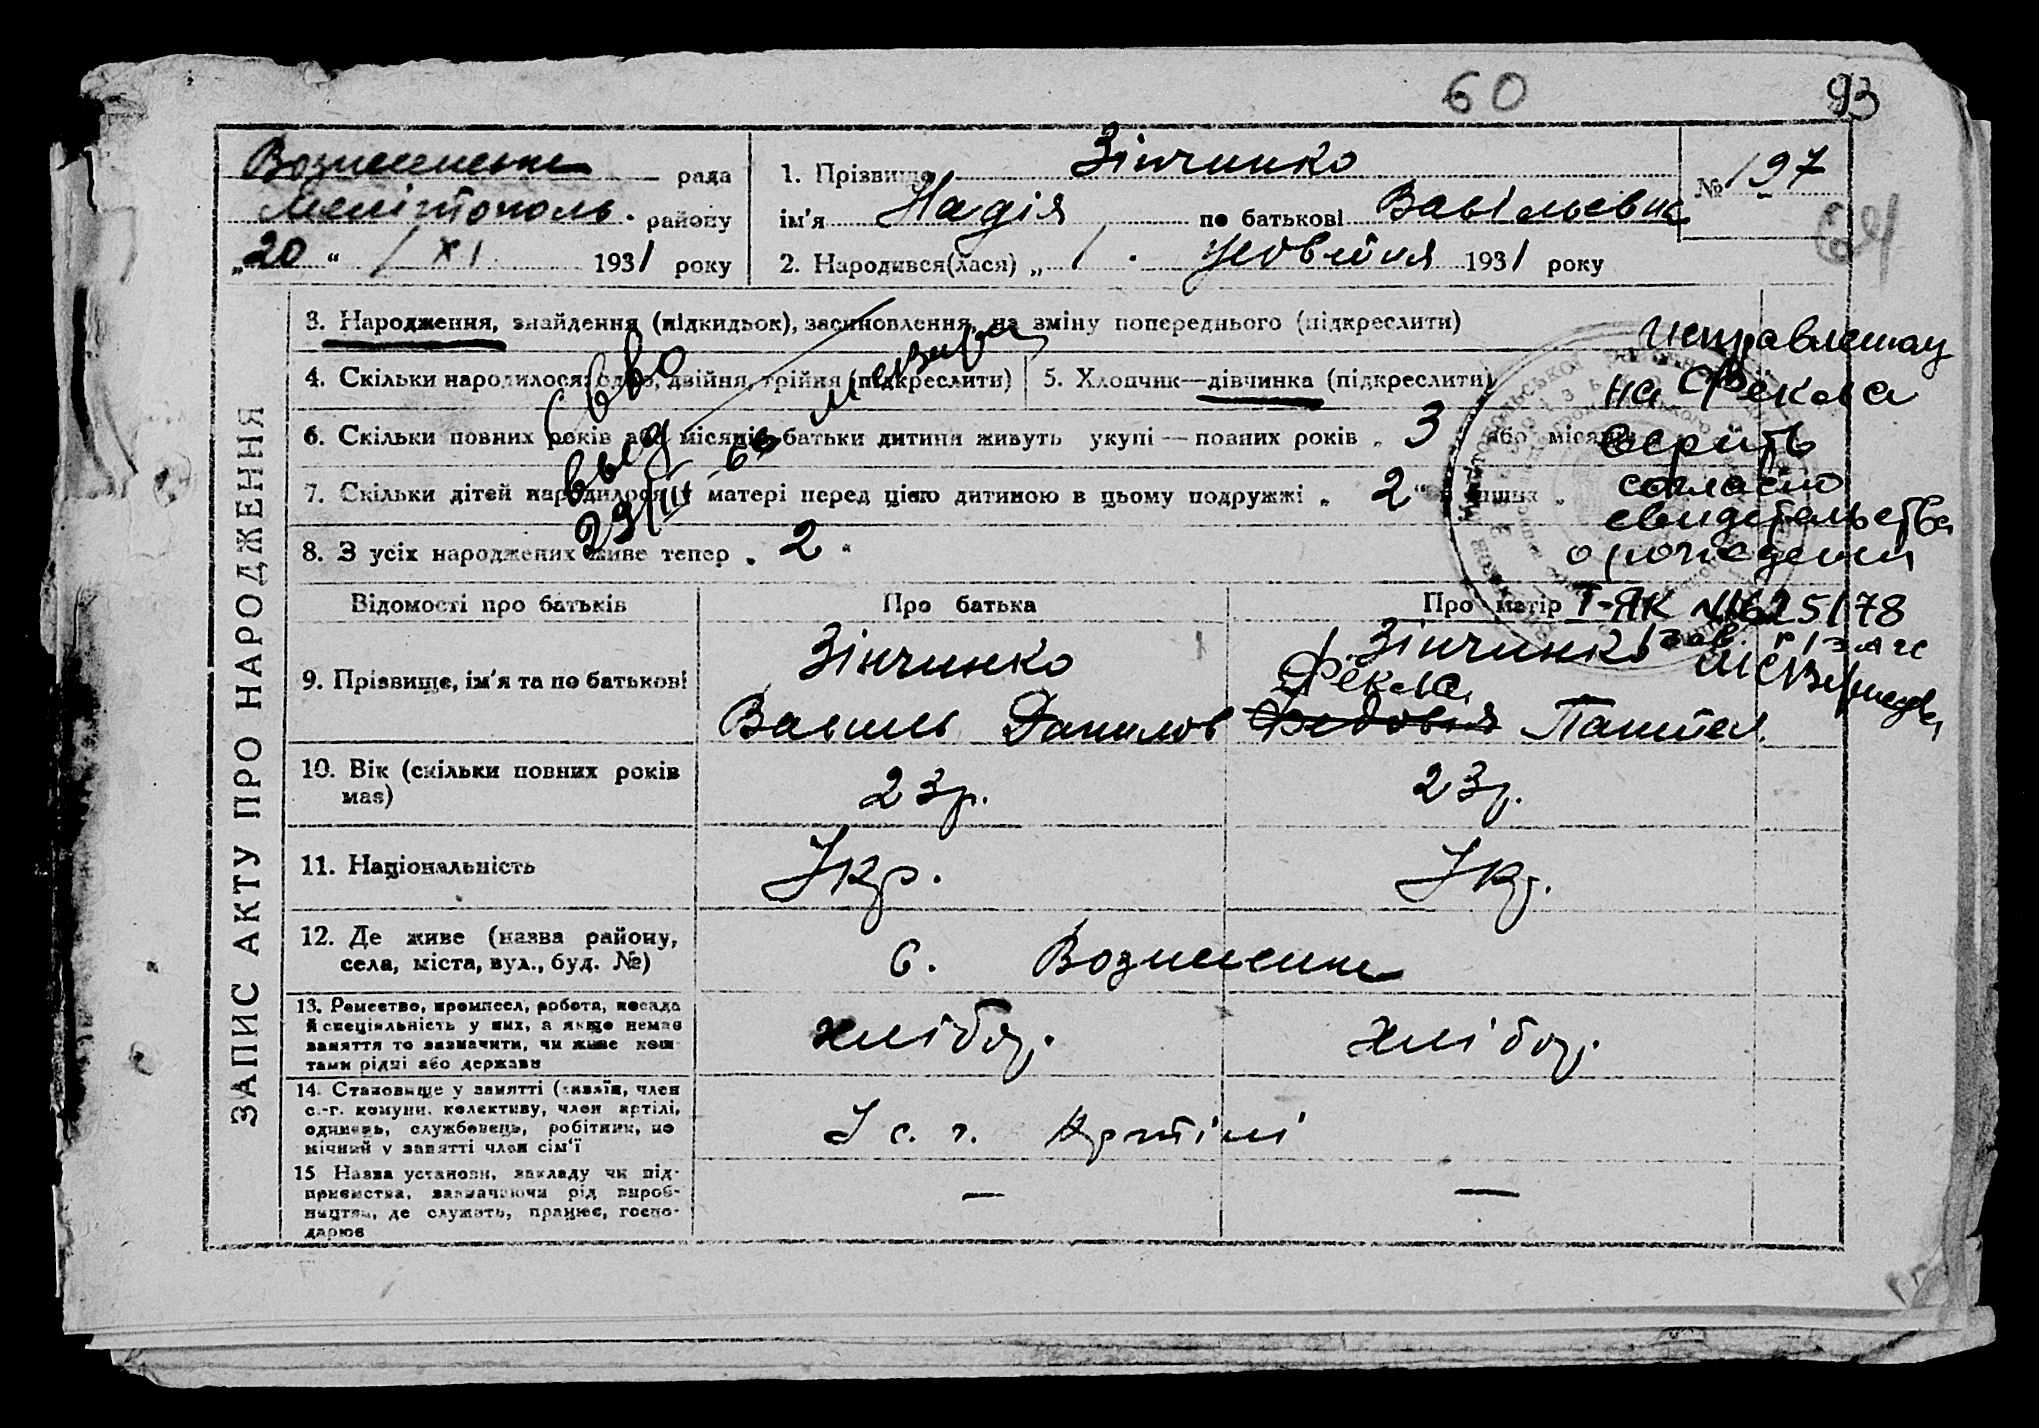 60 93
Вознесенська рада
Мелітополь. району
„20“ / XI 1931 року
1. Прізвище Зінчинко
ім'я Надія по батькові Васільевна
2. Народився(лася) „1. 1931 року
№ 197
64
ЗАПИС АКТУ ПРО НАРОДЖЕННЯ
3. Народження, знайдення (підкидьок), засиновлення, на зміну попереднього (підкреслити)
4. Скільки народилося: одно, двійня, трійня (підкреслити)
5. Хлопчик—дівчинка (підкреслити)
6. Скільки повних років або місяців батьки дитини живуть укупі — повних років „ 3 або місяців
7. Скільки дітей народилося у матері перед цією дитиною в цьому подружжі „ 2 “
8. З усіх народжених живе тепер „ 2 “
с-во
выд
29/III 66
исправленому
на Фекла
верить
согласно
свидетельства
о рождении
I-ЯК №625178
зав. р/загс
Відомості про батьків
Про батька
Про матір
9. Прізвище, ім'я та по батькові
Зінчинко
Василь Данилов
Зінчинко
Фекла
Федовія Пантел.
10. Вік (скільки повних років
має)
23р.
23р.
11. Національність
Укр.
Укр.
12. Де живе (назва району,
села, міста, вул., буд. №)
с. Вознесенка
13. Ремество, промисел, робота, посада
й спеціяльність у них, а якщо немає
заняття то зазначити, чи живе кош-
тами рідні або держави
хлібор.
хлібор.
14. Становище у занятті (хазяїн, член
с.-г. комуни, колективу, член артілі,
одинець, службовець, робітник, по
мічний у занятті член сім'ї
У с. г. Артілі
15 Назва установи, закладу чи під-
приємства, зазначаючи рід вироб-
ництва, де служить, працює, госпо-
дарює
—
—